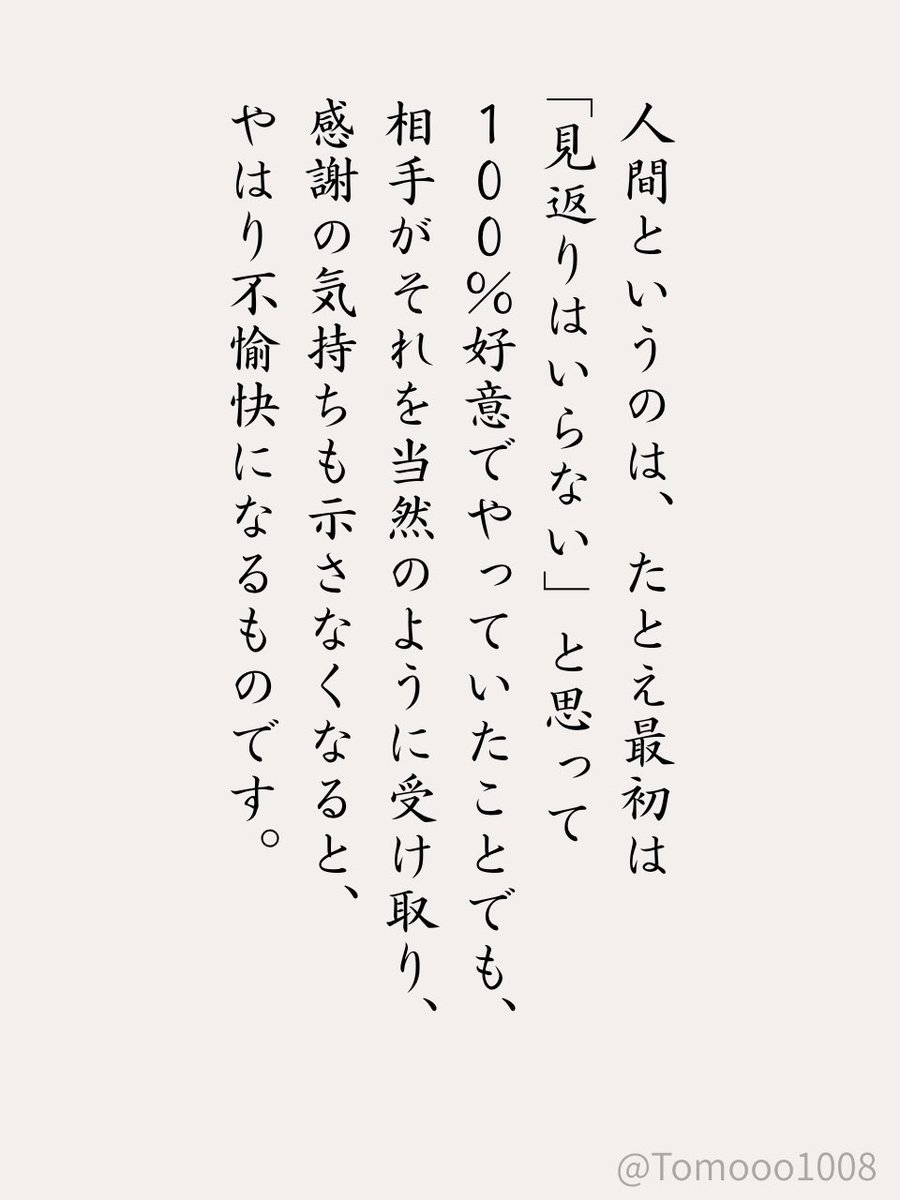 人間というのは、たとえ最初は
「見返りはいらない」と思って
100%好意でやっていたことでも、
相手がそれを当然のように受け取り、
感謝の気持ちも示さなくなると、
やはり不愉快になるものです。
@Tomooo1008